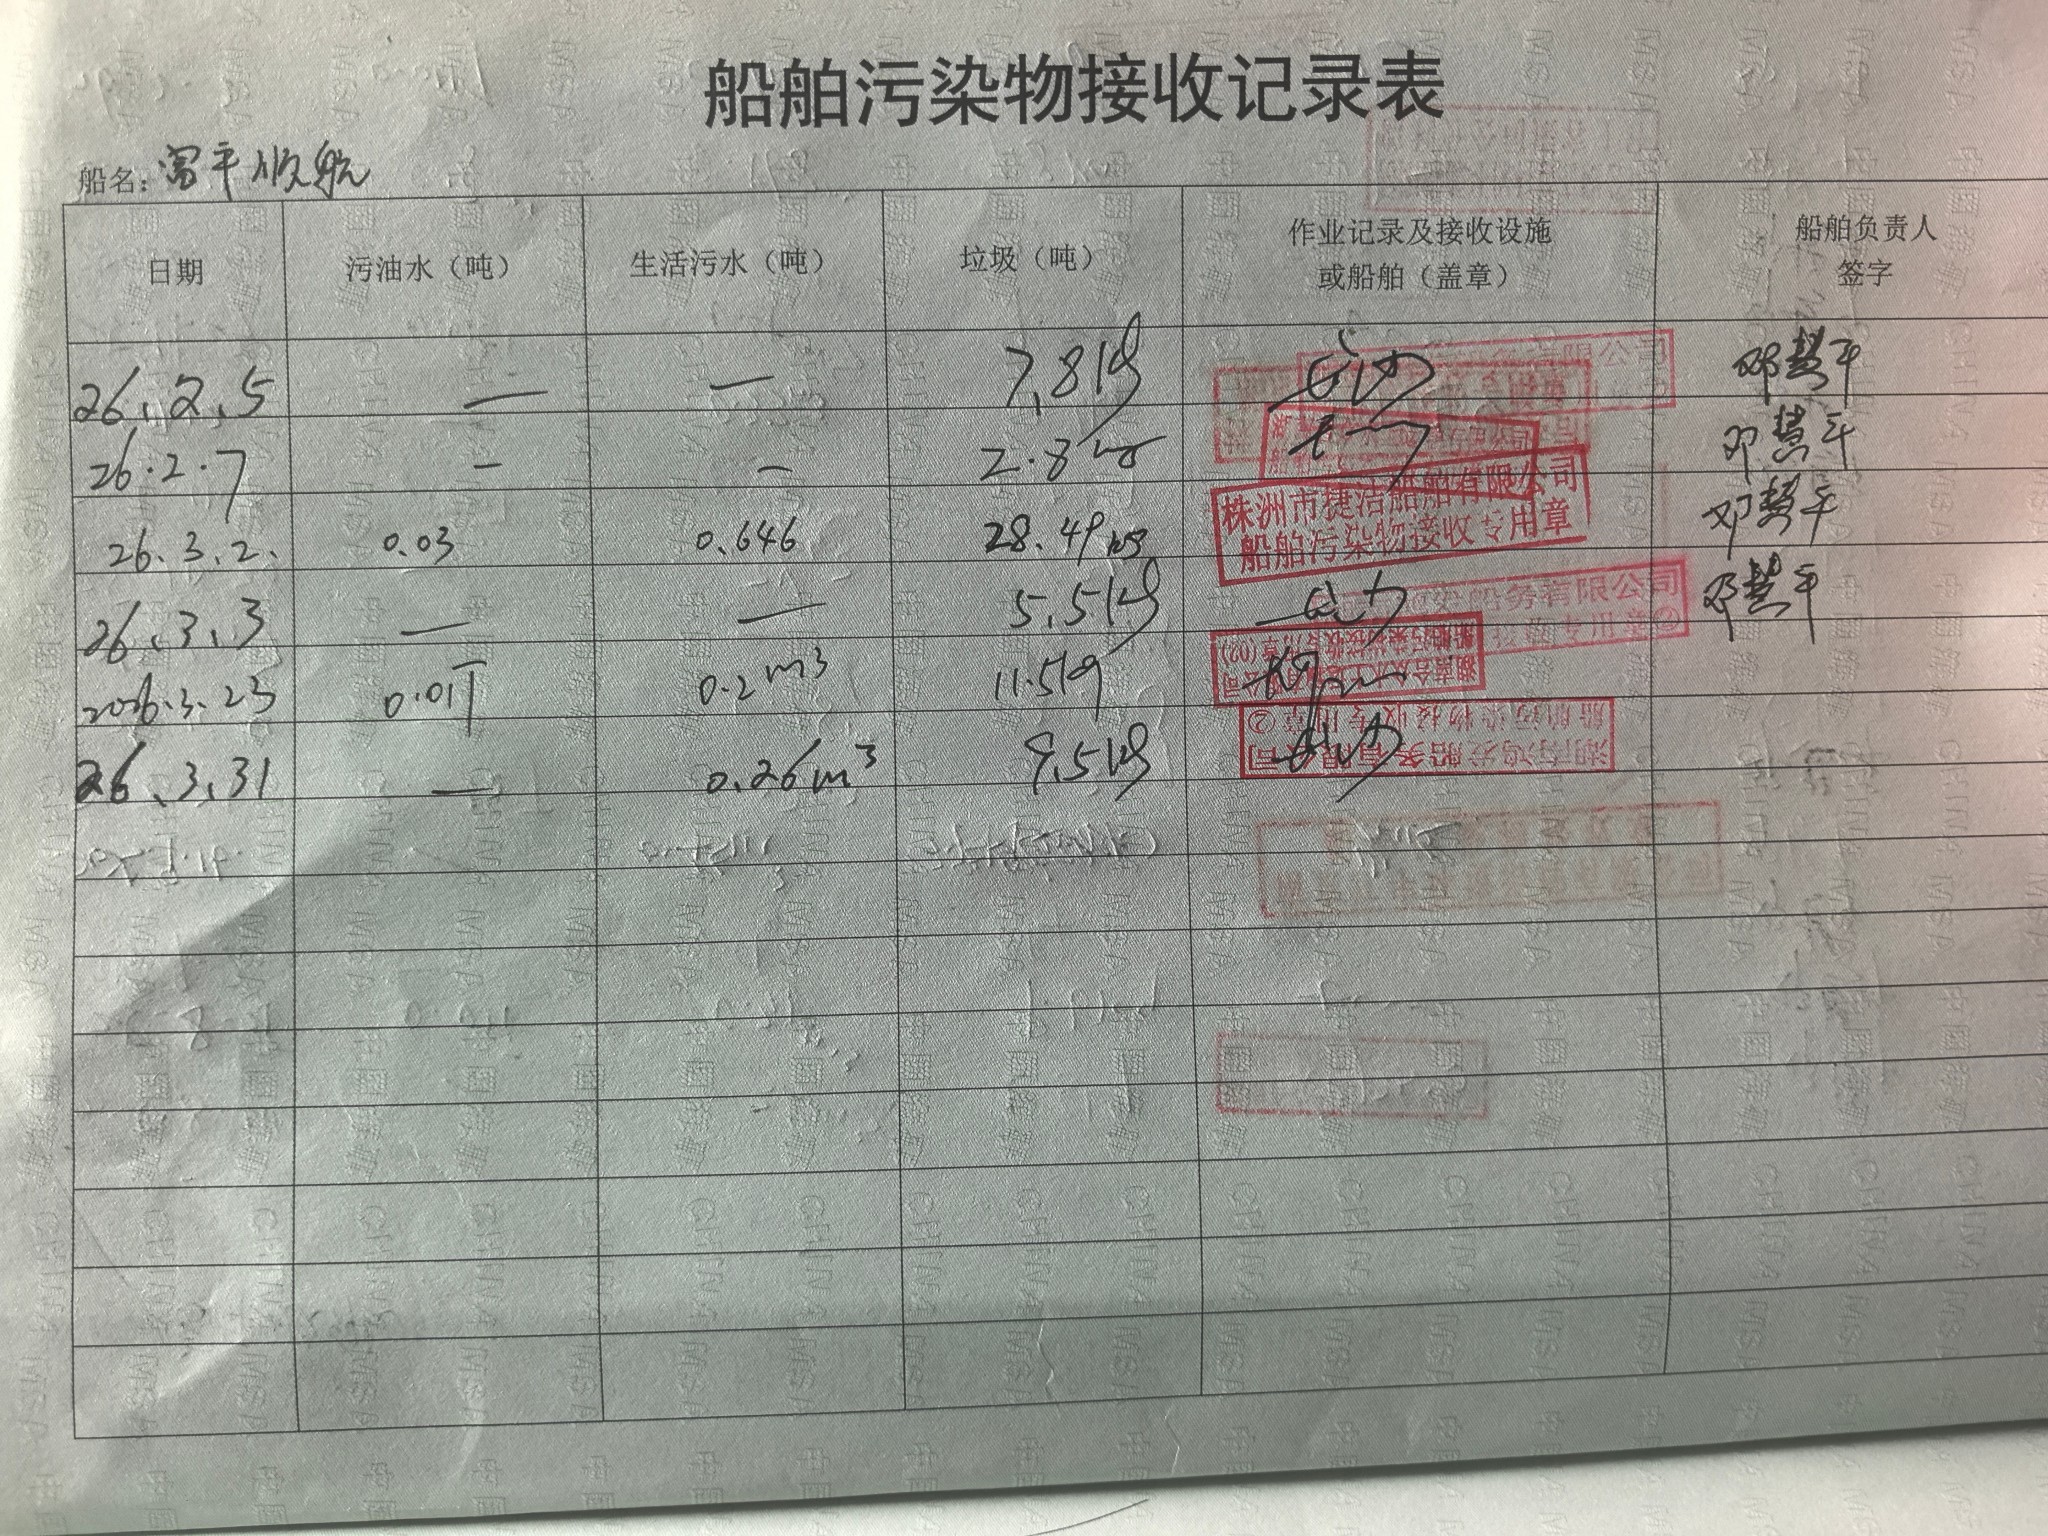 船舶污染物接收记录表
船名：富平顺航
日期 污油水（吨） 生活污水（吨） 垃圾（吨） 作业记录及接收设施或船舶（盖章） 船舶负责人签字
26、2、5 — — 7.8kg 邓慧平
26.2.7 — — 2.8kg 邓慧平
26.3.2. 0.03 0.646 28.49kg 株洲市捷洁船舶有限公司 船舶污染物接收专用章 邓慧平
26、3、3 — — 5.5kg 船务有限公司 邓慧平
2026.3.23 0.01T 0.2m³ 11.5kg
26、3、31 — 0.26m³ 9.5kg 湖南鸿发船务有限公司 船舶污染物接收专用章②